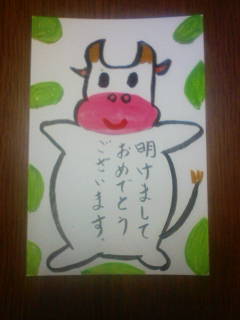 明けまして
おめでとう
ございます.